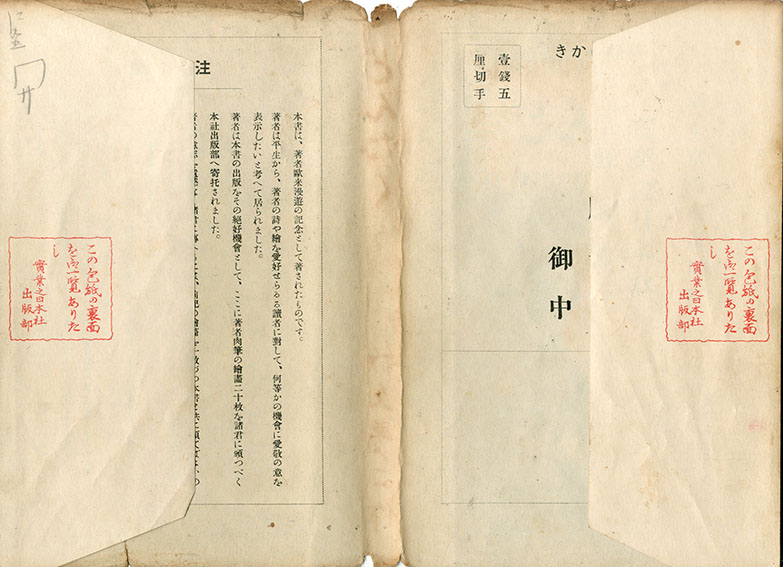 かき
壹錢五
厘切手
御中
この包紙の裏面
を御一覧ありた
し
實業之日本社
出版部
注
本書は、著者歐米漫遊の記念として著されたものです。
著者は平生から、著者の詩や繪を愛好せらるる讀者に對して、何等かの機會に愛敬の意を
表示したいと考へて居られました。
著者は本書の出版をその絕好機會として、ここに著者肉筆の繪畫二十枚を諸君に頒つべく
本社出版部へ寄托されました。
この包紙の裏面
を御一覧ありた
し
實業之日本社
出版部